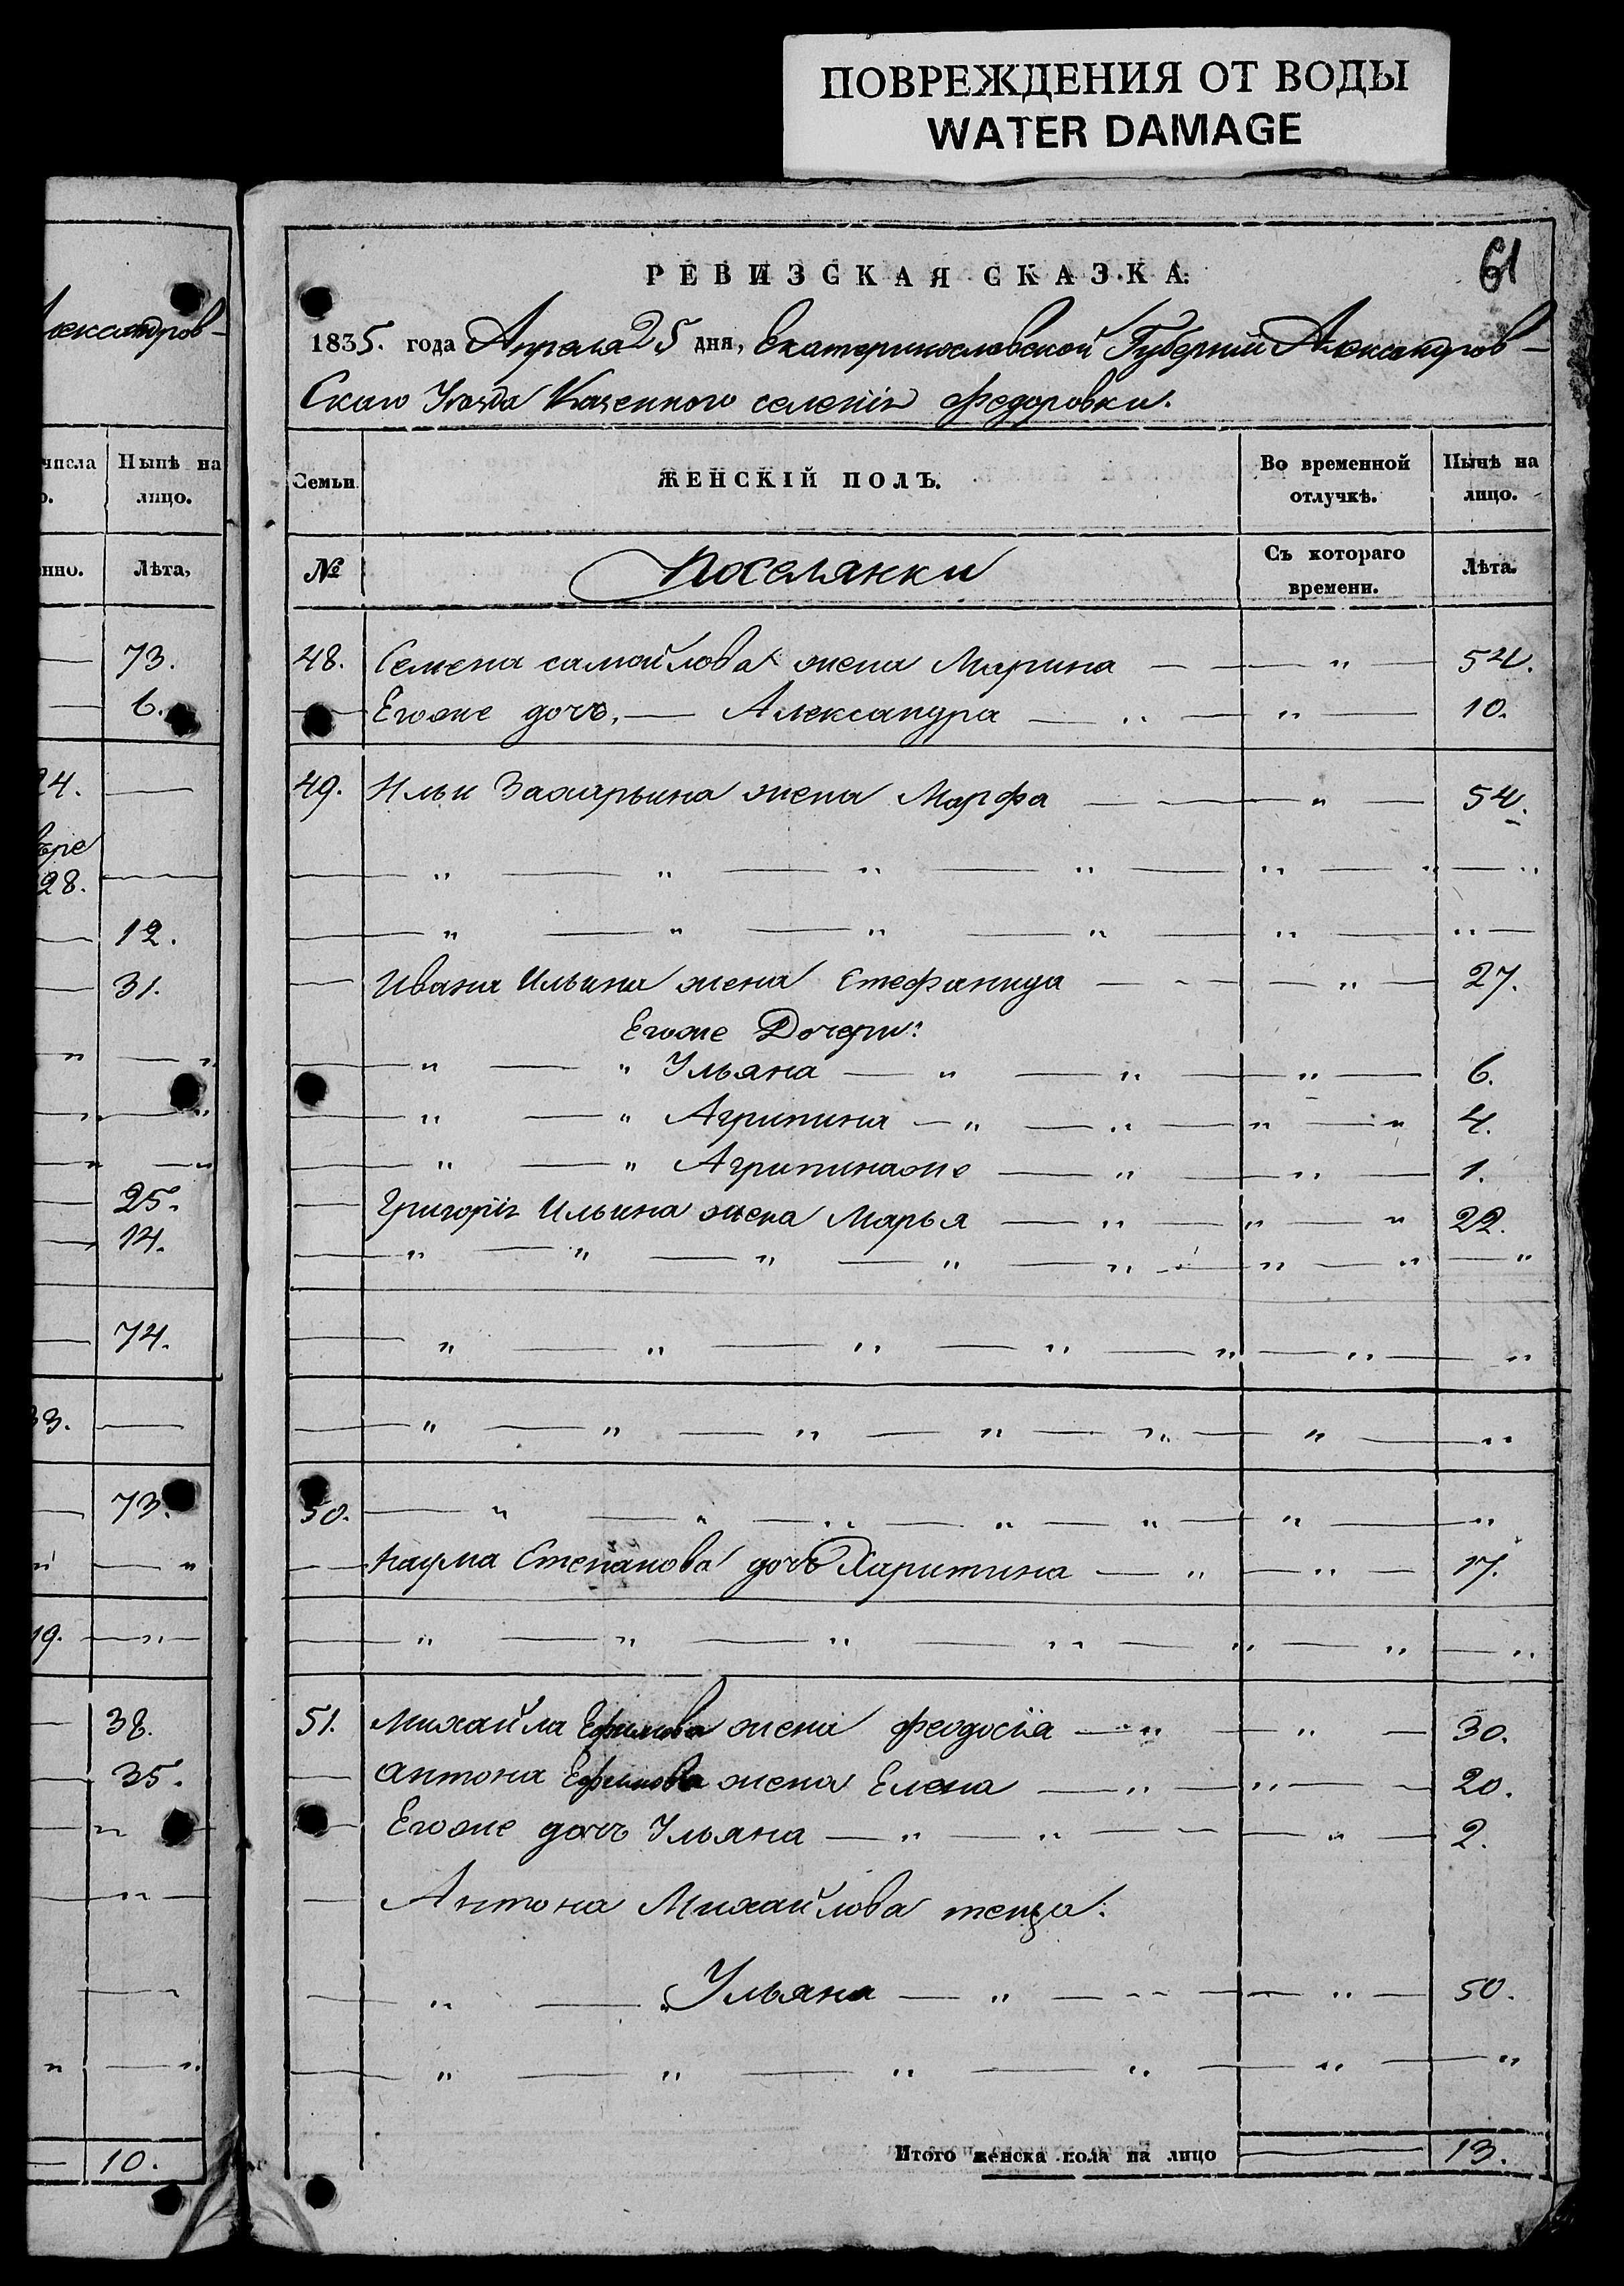 ПОВРЕЖДЕНИЯ ОТ ВОДЫ
WATER DAMAGE
61
РЕВИЗСКАЯ СКАЗКА.
1835. года Апреля 25 дня, Екатеринославской Губернии Александров-
скаго Уезда Казенного селения Федоровки.
Семьи ЖЕНСКІЙ ПОЛЪ. Во временной отлучкѣ. Нынѣ на лицо.
№ Поселянки Съ котораго времени. Лѣта.
48. Семена самойлова жена Марина — — — „ 54.
— Егоже дочь, — Александра — „ — „ — 10.
49. Ильи Захарьина жена Марфа — — — „ — 54.
— Ивана Ильина жена Стефанида — - - — „ — 27.
Егоже Дочери:
— „ — „ Ульяна — „ — „ — „ — 6.
— „ — „ Агрипина — „ — „ — „ — „ 4.
— „ — „ Агрипинаже — „ — „ — 1.
— Григорія Ильина жена Марья — „ — „ — „ 22.
50. — „ — „ — „ — „ — „ — „ — „
— Наума Степанова дочь Харитина — „ — „ — 17.
51. Михайла Ефимова жена феодосіа — „ — „ — 30.
— Антона Ефимова жена Елена — „ — „ — 20.
— Егоже дочь Ульяна — „ — „ — — „ — 2.
— Антона Михайлова теща:
— „ — „ Ульяна — „ — - - — „ — 50.
Итого женска пола на лицо — 13.
Александров-
числа Нынѣ на
лицо.
Лѣта,
— 73.
— 6.
24. —
28. —
— 12.
— 31.
— 25.
— 14.
— 74.
33. —
— 73.
19. — „ —
— 38.
— 35.
— 10.